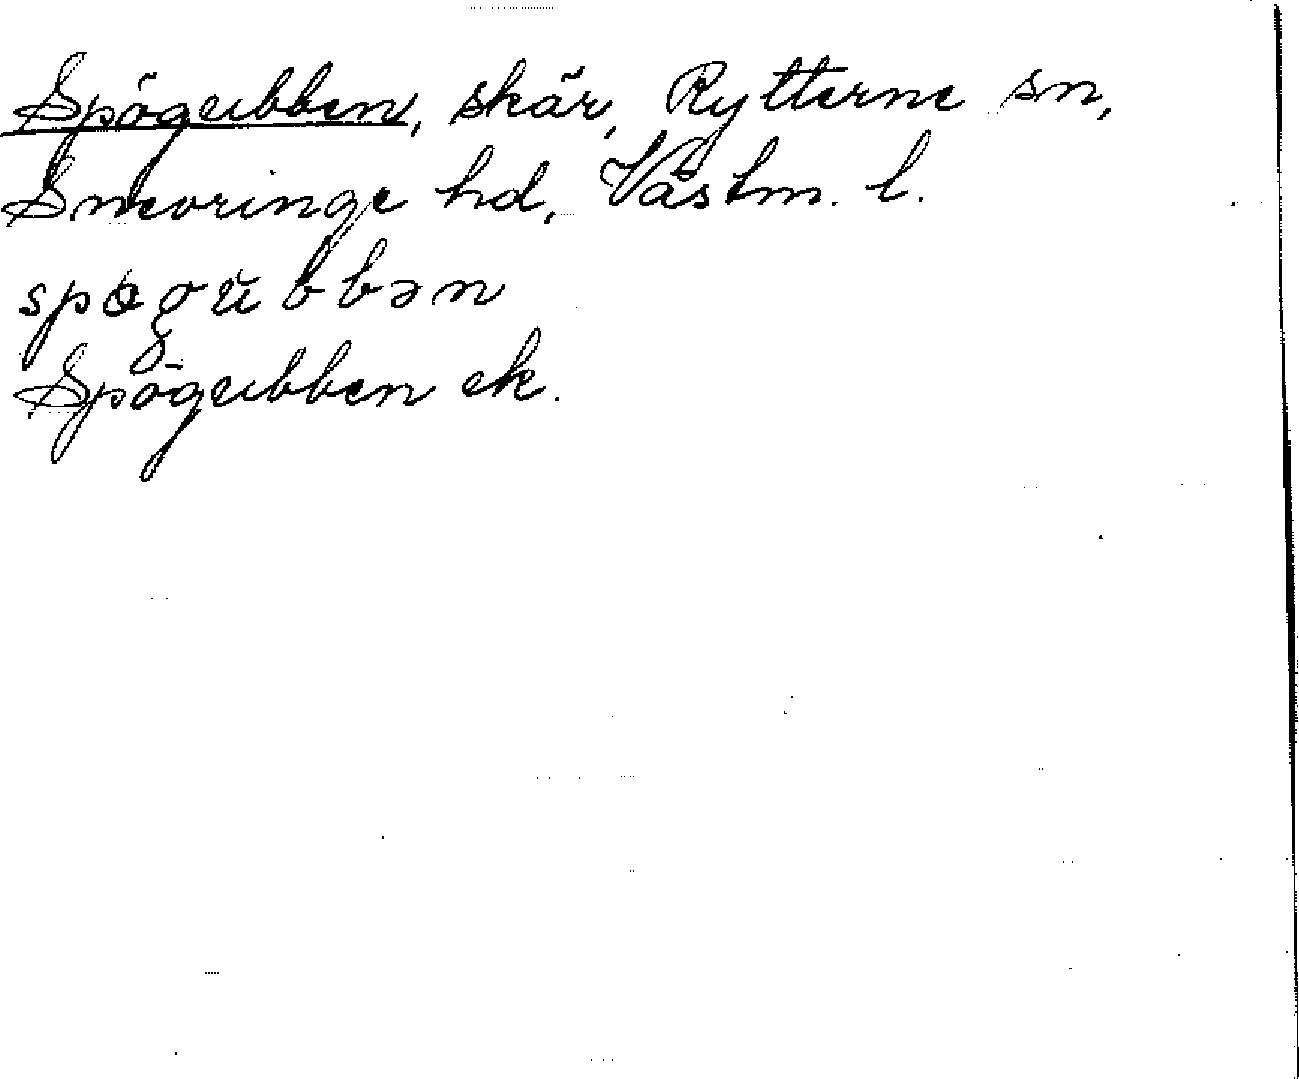 Spögubben, skär, Rytterne sn,
Snevringe hd, Västm. l.
spøgŭbbən
Spögubben ek.